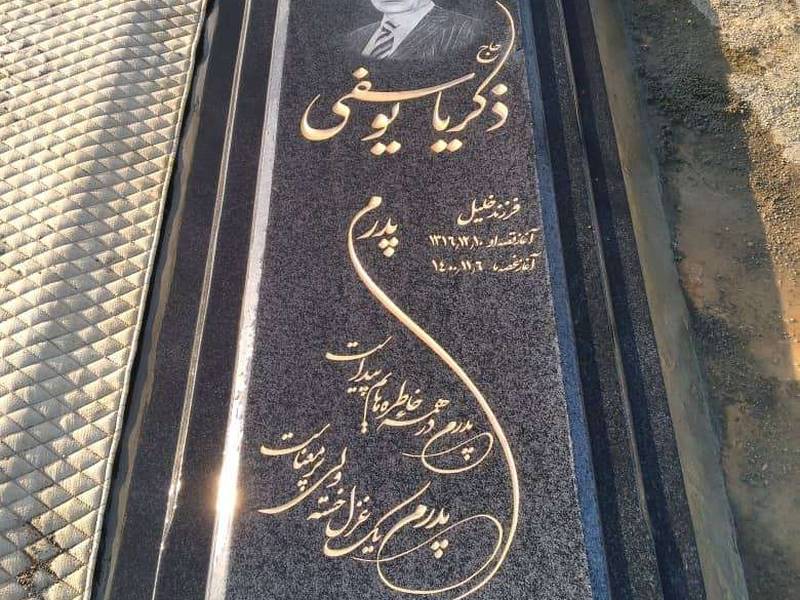 حاج
ذکریا یوسفی
فرزند خلیل
آغاز اقتدار ۱۳۱۶٫۱۲٫۱۰
آغاز غصه ما ۱۴۰۰٫۱۱٫۶
پدرم
پدرم در همه خاطره هایم پیداست
پدرم یک غزل خسته ولی پر معناست